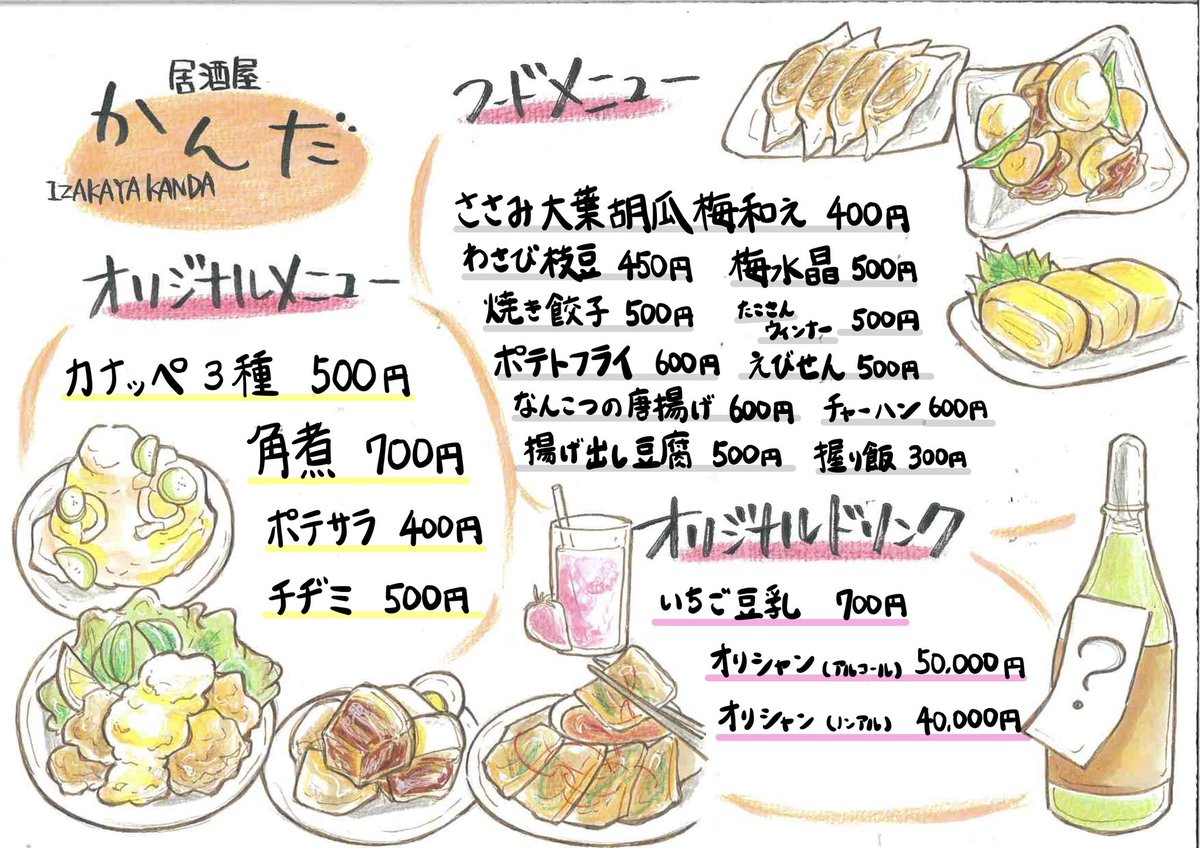 居酒屋
かんだ
IZAKAYA KANDA
オリジナルメニュー
カナッペ3種 500円
角煮 700円
ポテサラ 400円
チヂミ 500円
フードメニュー
ささみ大葉胡瓜梅和え 400円
わさび枝豆 450円 梅水晶 500円
焼き餃子 500円 たこさん
ウィンナー 500円
ポテトフライ 600円 えびせん 500円
なんこつの唐揚げ 600円 チャーハン 600円
揚げ出し豆腐 500円 握り飯 300円
オリジナルドリンク
いちご豆乳 700円
オリシャン(アルコール) 50,000円
オリシャン(ノンアル) 40,000円
?